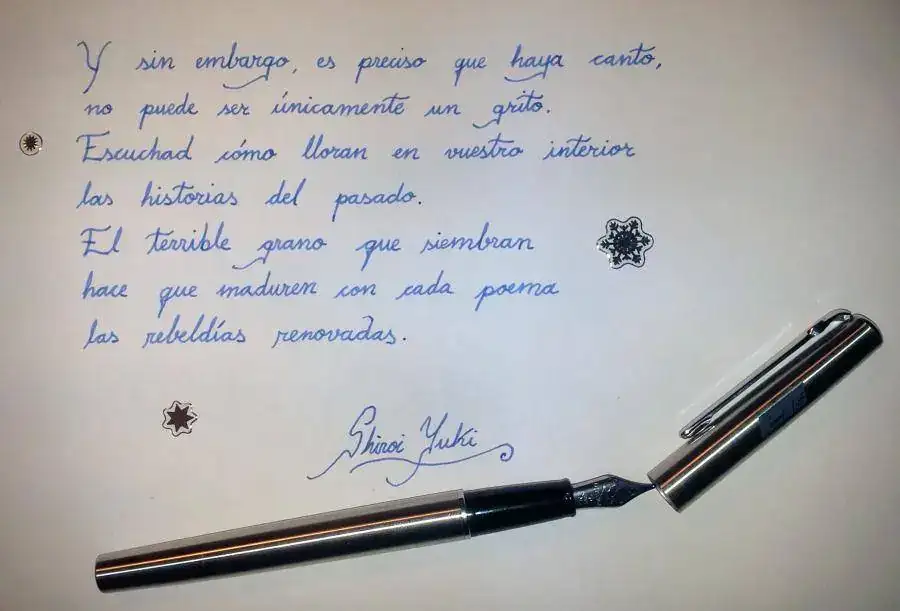 Y sin embargo, es preciso que haya canto,
no puede ser únicamente un grito.
Escuchad cómo lloran en vuestro interior
las historias del pasado.
El terrible grano que siembran
hace que maduren con cada poema
las rebeldías renovadas.
Shiroi Yuki